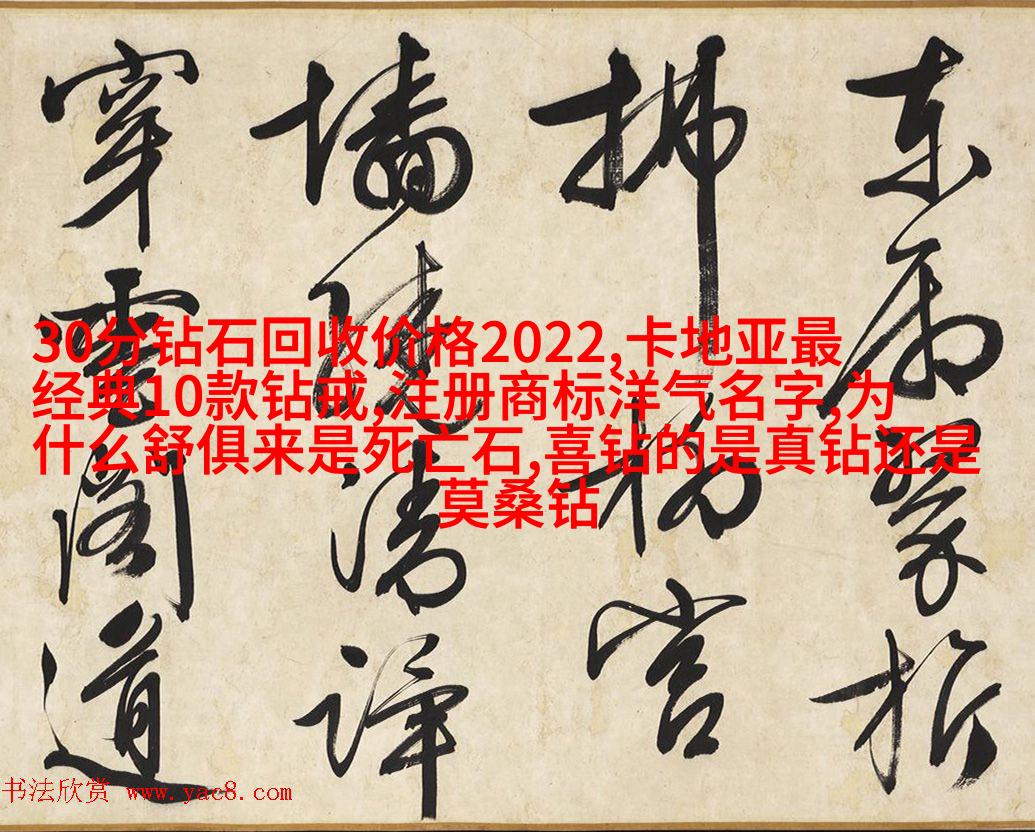 30分钻石回收价格2022,卡地亚最
经典10款钻戒,注册商标洋气名字,为
什么舒俱来是死亡石,喜钻的是真钻还是
莫桑钻
東
拂 营
墙 清
穿雲閣道
书法欣赏 www.yac8.com